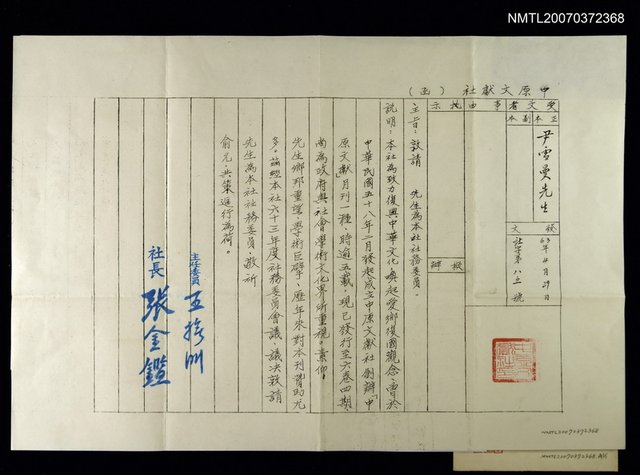 NMTL20070372368
中原文獻社（函）
受文者
事由
批示
正本
副本
尹雪曼先生
發文
63年4月29日
社字第八三號
擬辦
主旨：敦請 先生為本社社務委員。
說明：本社為致力復興中華文化，喚起愛鄉復國觀念，曾於
中華民國五十八年二月發起成立中原文獻社，創辦「中
原文獻」月刊一種，時逾五載，現已發行至六卷四期
尚為政府與社會學術文化界所重視、景仰。
先生鄉邦重望、學術巨擘，歷年來對本刊贊助尤
多。茲經本社六十三年度社務委員會議，議決敦請
先生為本社社務委員，敬祈
俞允，共策進行為荷。
主任委員
社長 張金鑑
NMTL20070372368
NMTL20070372368.A11